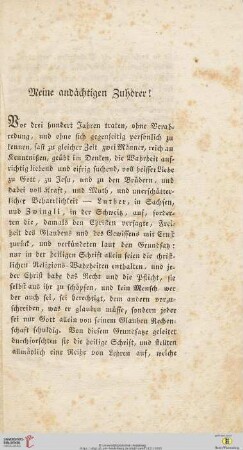 Meine andächtigen Zuhörer!
Vor drei hundert Jahren traten, ohne Verab-
redung, und ohne sich gegenseitig persönlich zu
kennen, fast zu gleicher Zeit zwei Männer, reich an
Kenntnißen, geübt im Denken, die Wahrheit auf-
richtig liebend und eifrig suchend, voll heisser Liebe
zu Gott, zu Jesu, und zu den Brüdern, und
dabei voll Kraft, und Muth, und unerschütter-
licher Beharrlichkeit — Luther, in Sachsen,
und Zwingli, in der Schweiz, auf, forder-
ten die, damals den Christen versagte, Frei-
heit des Glaubens und des Gewissens mit Ernst
zurück, und verkündeten laut den Grundsatz:
nur in der heiligen Schrift allein seien die christ-
lichen Religions-Wahrheiten enthalten, und je-
der Christ habe das Recht und die Pflicht, sie
selbst aus ihr zu schöpfen, und kein Mensch we-
der auch sei, sei berechtigt, dem andern vorzu-
schreiben, was er glauben müsse, sondern jeder
sei nur Gott allein von seinem Glauben Rechen-
schaft schuldig. Von diesem Grundsatze geleitet
durchforschten sie die heilige Schrift, und stellten
allmählich eine Reihe von Lehren auf, welche